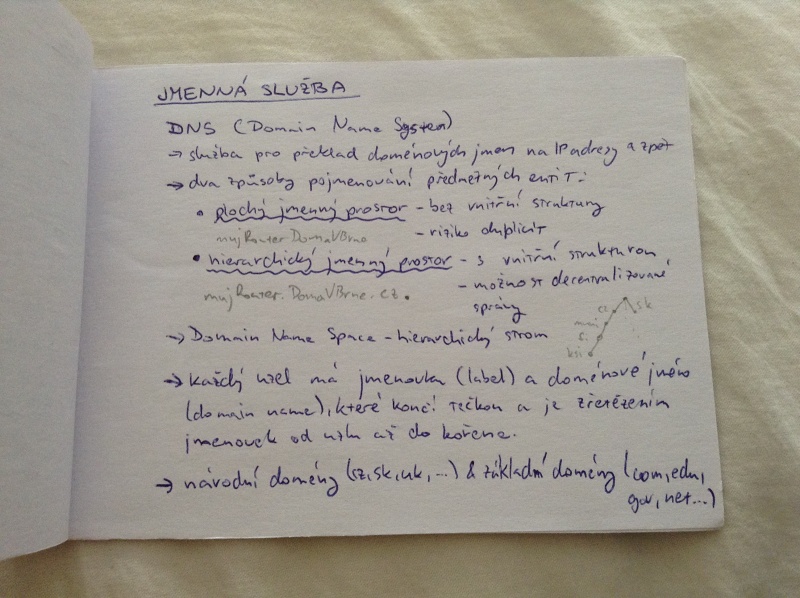 JMENNÁ SLUŽBA
DNS (Domain Name System)
→ služba pro překlad doménových jmen na IP adresy a zpět
→ dva způsoby pojmenování předmětných entit:
• plochý jmenný prostor - bez vnitřní struktury
mujRouterDomaVBrne - riziko duplicit
• hierarchický jmenný prostor - s vnitřní strukturou
- možnost decentralizované
mujRouter.DomaVBrne.cz.
správy
cz sk
muni
fi
→ Domain Name Space - hierarchický strom
→ každý uzel má jmenovka (label) a doménové jméno
(domain name), které končí tečkou a je zřetězením
jmenovek od uzlu až do kořene.
→ národní domény (sz,sk,uk,...) & základní domény (com,edu,
gov,net...)